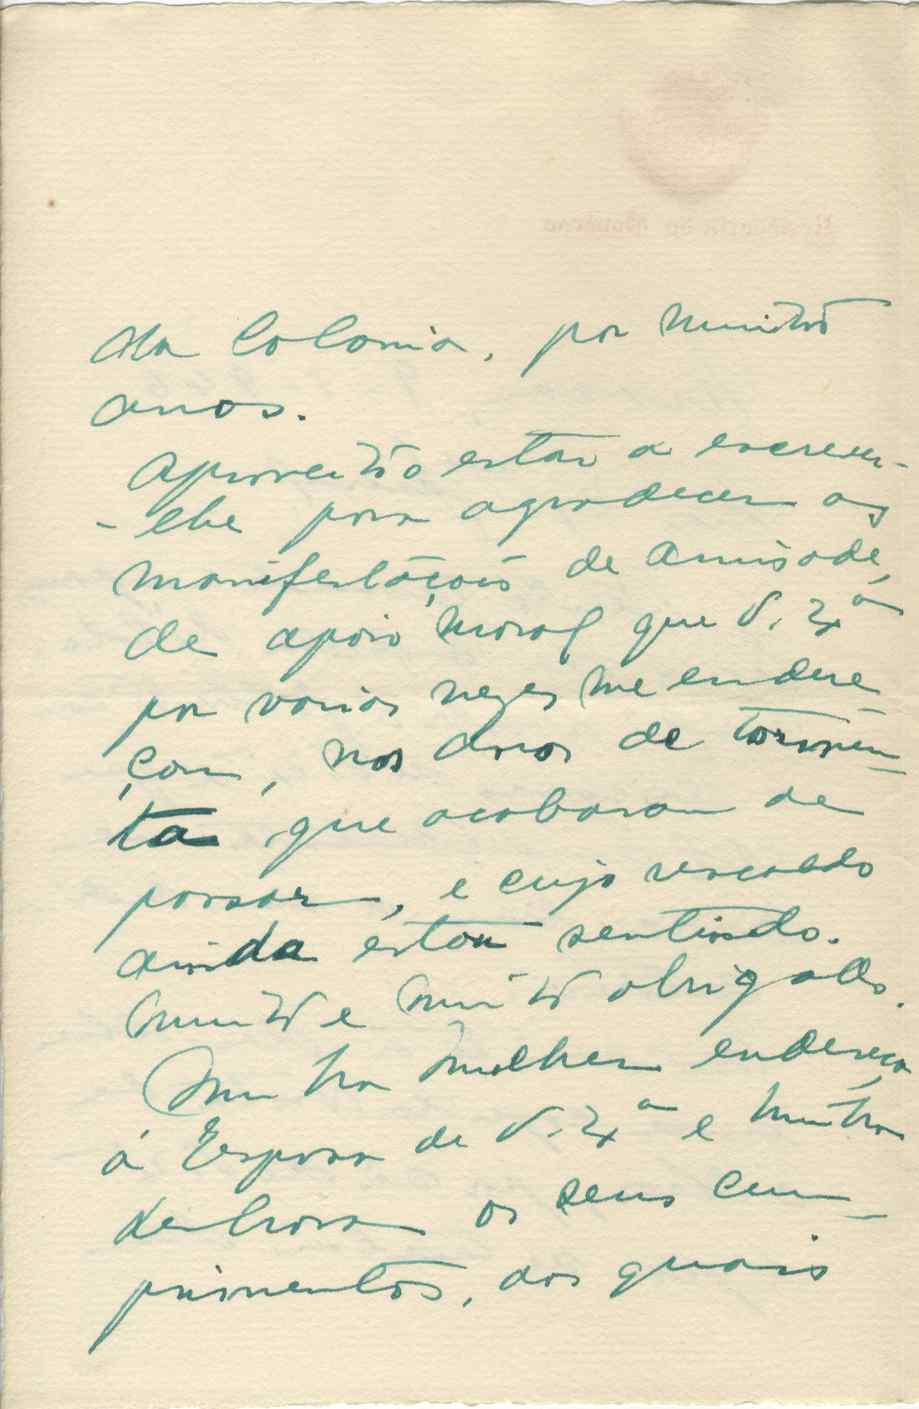 da Colonia, por muitos
anos.
Aproveito estar a escrever-
-lhe para agradecer as
manifestações de amisade,
de apoio moral que V. Exª
por varias vezes me endere-
çou, nos anos de tormen-
ta que acabaram de
passar, e cujo rescaldo
ainda estou sentindo.
Muito e muito obrigado.
Minha mulher endereça
á Esposa de V. Exª e minha
senhora os seus cum-
primentos, aos quais